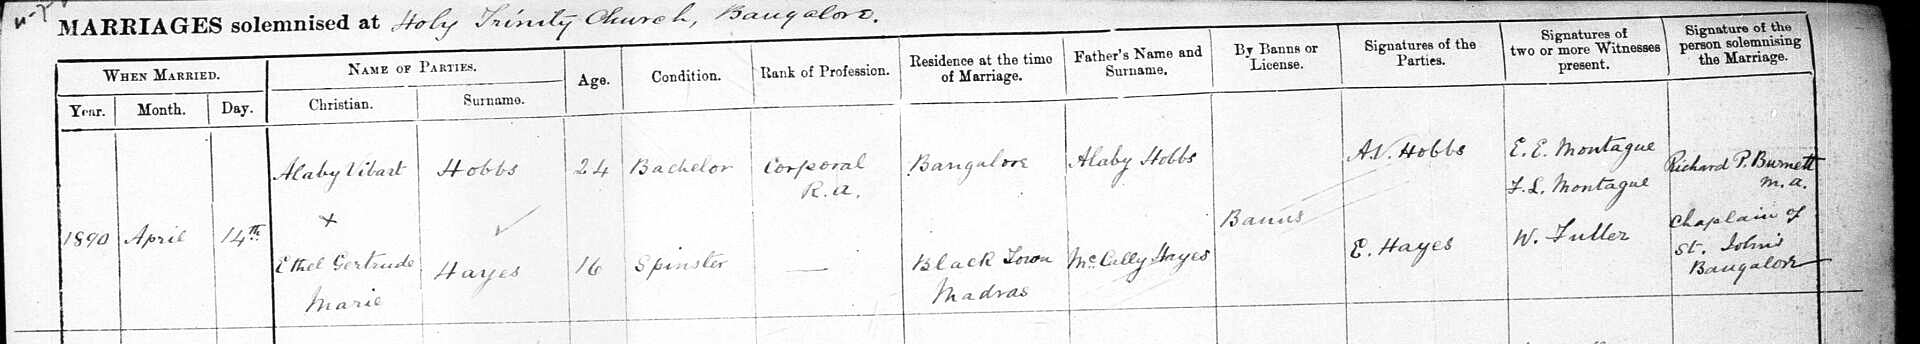 MARRIAGES solemnised at Holy Trinity Church, Bangalore.
WHEN MARRIED.
Year. Month. Day.
NAME OF PARTIES.
Christian. Surname.
Age.
Condition.
Rank of Profession.
Residence at the time
of Marriage.
Father's Name and
Surname.
By Banns or
License.
Signatures of the
Parties.
Signatures of
two or more Witnesses
present.
Signature of the
person solemnising
the Marriage.
1890 April 14th
Alaby Vibart Hobbs 24 Bachelor Corporal
R.A.
Bangalore Alaby Hobbs
A.V. Hobbs
E. E. Montague
F. L. Montague
+
Ethel Gertrude
Marie
Hayes 16 Spinster —
Black Town
Madras
McCally Hayes
Banns
E. Hayes
W. Fuller
Richard P. Burnett
M.A.
Chaplain of
St. John's
Bangalore